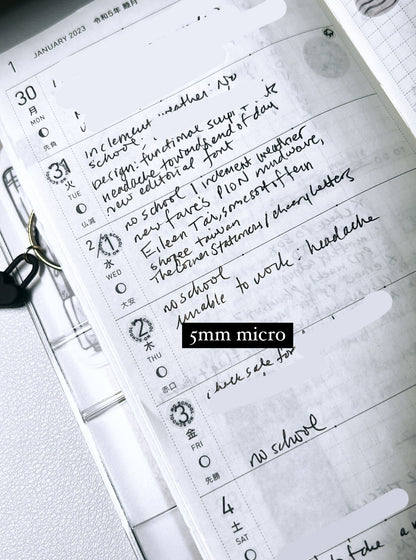 1 JANUARY 2023 令和5年 睦月
30
月
MON
先負
inclement weather: No
school
31
火
TUE
仏滅
Design: functional
headache toward end of day
new editorial font
2
1
水
WED
大安
no school / inclement weather
new fave's PION mindwave,
Eileen Tai, some sort of fern
shopee taiwan
The Corner Stationers / cherry letters
2
木
THU
赤口
no school
unable to work: headache
5mm micro
3
金
FRI
先勝
check sale for
no school
4
土
SAT